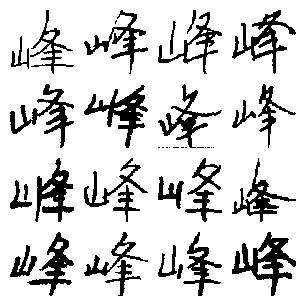 峰峰峰峰
峰峰峰峰
峰峰峰峰
峰峰峰峰